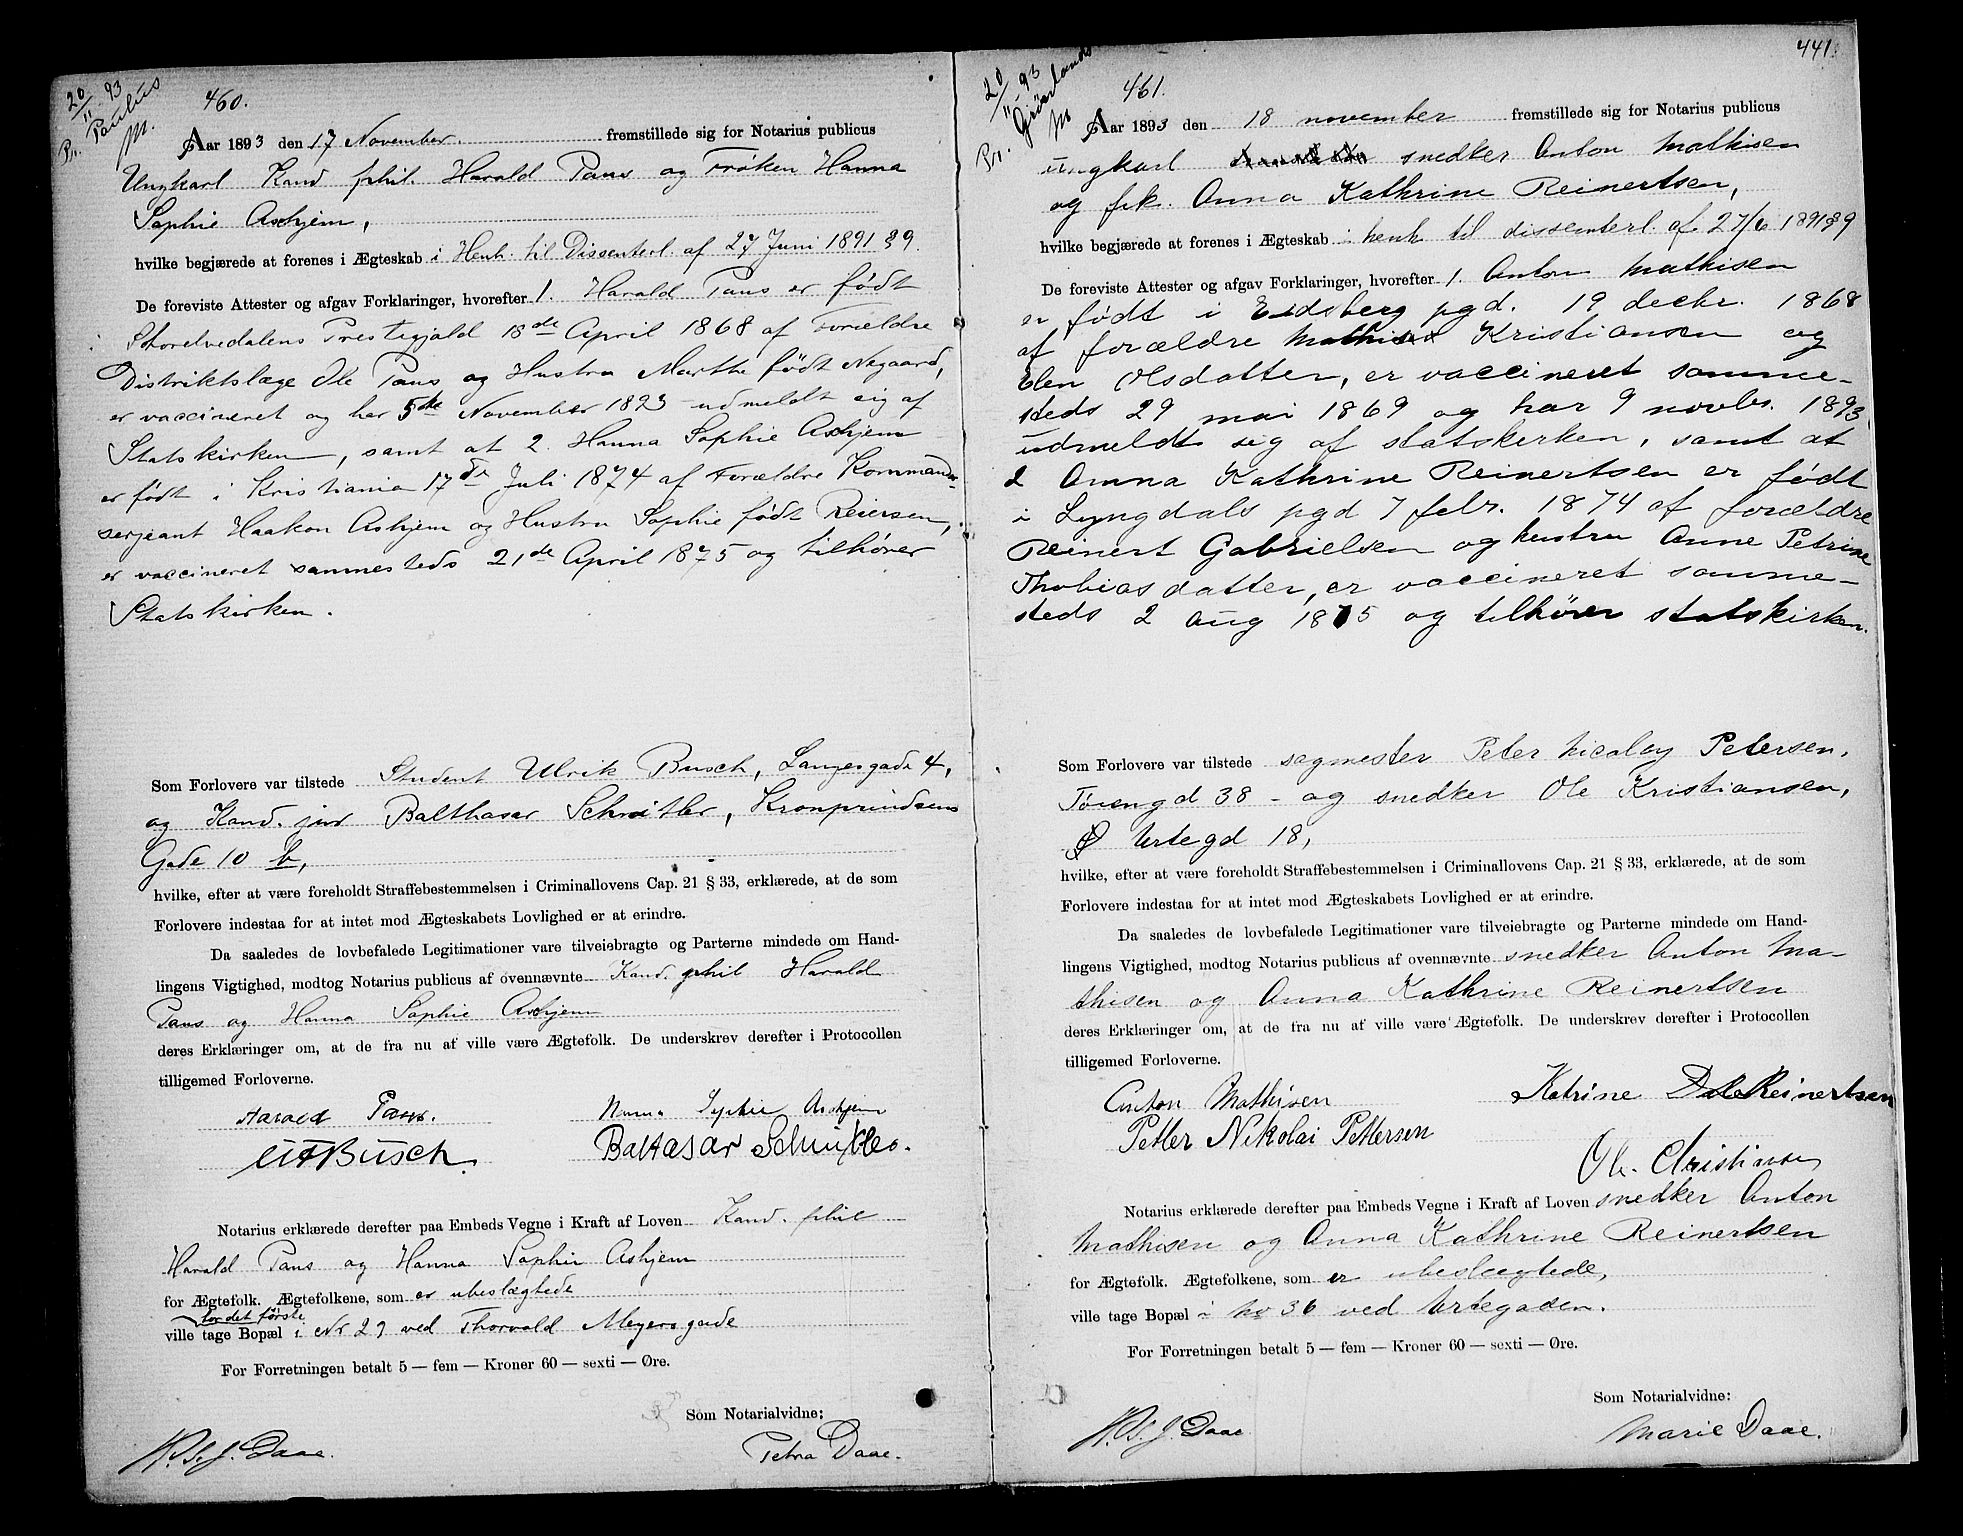 20/11-93
Pr. Paulus
460.
Aar 1893 den 17 November. fremstillede sig for Notarius publicus
Ungkarl Kand phil. Harald Paus og Frøken Hanna
Sophie Ashjem,
hvilke begjærede at forenes i Ægteskab i Henh. til Dissenterl. af 27 Juni 1891 § 9.
De foreviste Attester og afgav Forklaringer, hvorefter 1. Harald Paus er født
i Storelvedalens Prestegjæld 18de April 1868 af Forældre
Distriktslæge Ole Paus og Hustru Marthe født Negaard,
er vaccineret og har 5te November 1893 udmeldt sig af
Statskirken, samt at 2. Hanna Sophie Ashjem
er født i Kristiania 17de Juli 1874 af Forældre Kommandér-
sergeant Haakon Ashjem og Hustru Sophie født Reiersen,
er vaccineret sammesteds 21de April 1875 og tilhører
Statskirken.
Som Forlovere var tilstede Student Ulrik Busch, Langesgade 4,
og Kand. jur Balthasar Schnitler, Kronprindsens
Gade 10 b,
hvilke, efter at være foreholdt Straffebestemmelsen i Criminallovens Cap. 21 § 33, erklærede, at de som
Forlovere indestaa for at intet mod Ægteskabets Lovlighed er at erindre.
Da saaledes de lovbefalede Legitimationer vare tilveiebragte og Parterne mindede om Hand-
lingens Vigtighed, modtog Notarius publicus af ovennævnte Kand. phil Harald
Paus og Hanna Sophie Ashjem
deres Erklæringer om, at de fra nu af ville være Ægtefolk. De underskrev derefter i Protocollen
tilligemed Forloverne.
Harald Paus. Hanna Sophie Ashjem
UFBusch. Baltasar Schnitler.
Notarius erklærede derefter paa Embeds Vegne i Kraft af Loven Kand. phil
Harald Paus og Hanna Sophie Ashjem
for Ægtefolk. Ægtefolkene, som er ubeslægtede
for det første
ville tage Bopæl i Nr 29 ved Thorvald Meyers gade
For Forretningen betalt 5 — fem — Kroner 60 — sexti — Øre.
Som Notarialvidne:
H.S.J. Daae. Petra Daae.
441.
20/11-93
Pr. Grønland
461.
Aar 1893 den 18 november fremstillede sig for Notarius publicus
ungkarl snedker Anton Mathisen
og frk. Anna Kathrine Reinertsen,
hvilke begjærede at forenes i Ægteskab i henh til dissenterl. af 27/6 1891 § 9
De foreviste Attester og afgav Forklaringer, hvorefter 1. Anton Mathisen
er født i Eidsberg pgd. 19 decbr. 1868
af forældre Mathias Kristiansen og
Elen Olsdatter, er vaccineret samme-
steds 29 mai 1869 og har 9 novbr. 1893
udmeldt sig af statskerken, samt at
2 Anna Kathrine Reinertsen er født
i Lyngdals pgd 7 febr. 1874 af forældre
Reinert Gabrielsen og hustru Anne Petrine
Thobiasdatter, er vaccineret samme-
steds 2 aug 1875 og tilhører statskirken.
Som Forlovere var tilstede sagmester Peter Nicolay Petersen,
Tøiengd 38 - og snedker Ole Kristiansen,
Ø Urtegd 18,
hvilke, efter at være foreholdt Straffebestemmelsen i Criminallovens Cap. 21 § 33, erklærede, at de som
Forlovere indestaa for at intet mod Ægteskabets Lovlighed er at erindre.
Da saaledes de lovbefalede Legitimationer vare tilveiebragte og Parterne mindede om Hand-
lingens Vigtighed, modtog Notarius publicus af ovennævnte snedker Anton Ma-
thisen og Anna Kathrine Reinertsen
deres Erklæringer om, at de fra nu af ville være Ægtefolk. De underskrev derefter i Protocollen
tilligemed Forloverne.
Anton Mathisen Katrine Reinertsen
Petter Nikolai Pettersen
Ole Christiansen
Notarius erklærede derefter paa Embeds Vegne i Kraft af Loven snedker Anton
Mathisen og Anna Kathrine Reinertsen
for Ægtefolk. Ægtefolkene, som er ubeslægtede,
ville tage Bopæl i no 36 ved Urtegaden.
For Forretningen betalt 5 — fem — Kroner 60 — sexti — Øre.
Som Notarialvidne:
H.S.J. Daae Marie Daae.